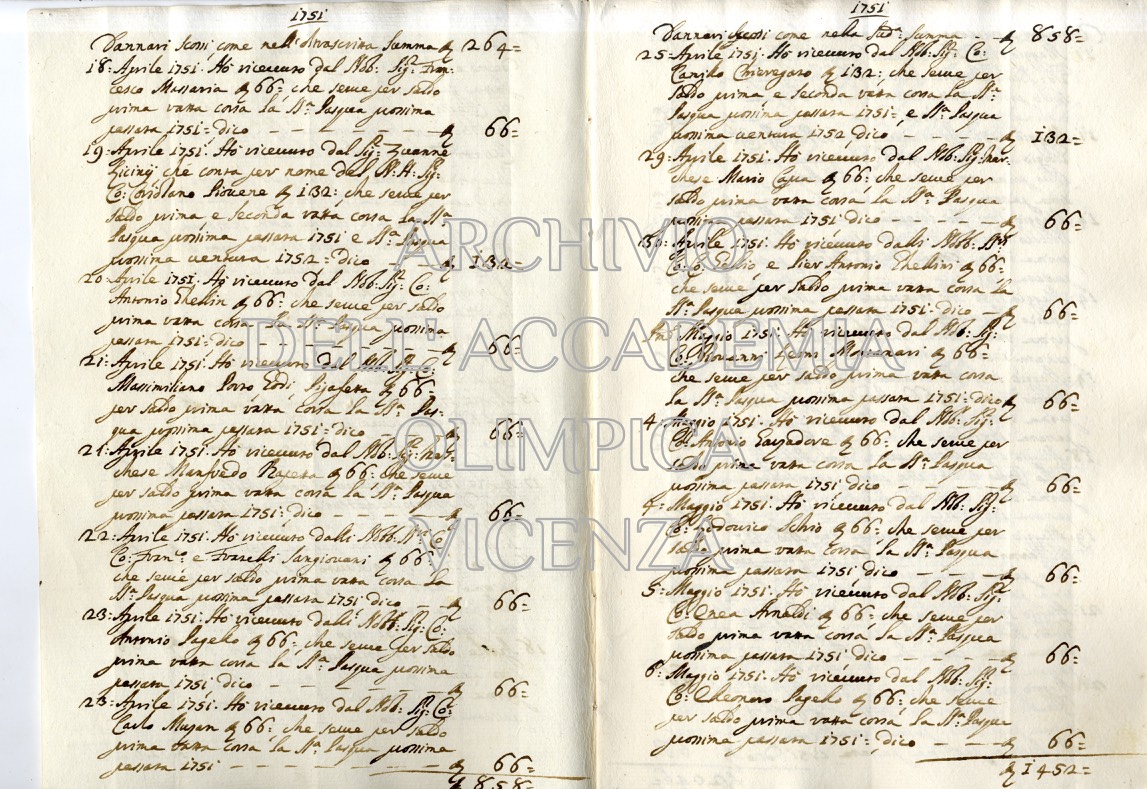 1751
Dannari scossi come nell'oltrascritta Summa 264=
18: Aprile 1751: Hò riceuuto dal Nob: Sig: Fran-
cesco Massaria 66=: che serue per saldo
prima ratta corsa la Sta: Pasqua prossima
passata 1751= dico 66=
19: Aprile 1751: Hò riceuuto dal Sig: Zuanne
che conta per nome del N: H: Sig:
Co: Coriolano Piouene 132: che serue per
saldo prima e seconda ratta corsa la Sta:
Pasqua prossima passata 1751 e Sta: Pasqua
prossima uentura 1752= Dico 132=
20: Aprile 1751: Hò riceuuto dal Nob: Sig: Co:
Antonio Ghellini 66=: che serue per saldo
prima ratta corsa la Sta: Pasqua prossima
passata 1751: dico 66=
21: Aprile 1751: Hò riceuuto dal Nob: Sig: Co:
Massimiliano Porto Godi Pigafetta 66=
per saldo prima ratta corsa la Sta: Pas-
qua prossima passata 1751: dico 66=
21: Aprile 1751: Hò riceuuto dal Nob: Sig: Mar-
chese Manfredo Repeta 66: che serue
per saldo prima ratta corsa la Sta: Pasqua
prossima passata 1751: dico 66=
22: Aprile 1751: Hò riceuuto dalli Nob: Sig: Co:
Co: Franco: e Fratelli Sangiouani 66=:
che serue per saldo prima ratta corsa la
Sta: Pasqua prossima passata 1751 dico 66=
23: Aprile 1751: Hò riceuuto dalli Nob: Sig: Co:
Antonio Pagello 66=: che serue per saldo
prima ratta corsa la Sta: Pasqua prossima
passata 1751: dico 66=
23: Aprile 1751: Hò riceuuto dal Nob: Sig: Co:
Carlo Muzan 66=: che serue per saldo
prima ratta corsa la Sta: Pasqua prossima
passata 1751 66=
858=
1751
Dannari scossi come nella Summa 858=
25: Aprile 1751: Hò riceuuto dal Nob: Sig: Co:
Camillo Chieregato 132: che serue per
saldo prima e seconda ratta corsa la Sta:
Pasqua prossima passata 1751= e Sta: Pasqua
prossima uentura 1752 dico 132=
29: Aprile 1751: Hò riceuuto dal Nob: Sig: Mar-
chese Mario Capra 66: che serue per
saldo prima ratta corsa la Sta: Pasqua
prossima passata 1751 dico 66=
30: Aprile 1751: Hò riceuuto dalli Nob: Sig:
Co: Co: Gellio e Pier Antonio Ghellini 66=
che serue per saldo prima ratta corsa la
Sta: Pasqua prossima passata 1751: dico 66=
Pmo: Maggio 1751: Hò riceuuto dal Nob: Sig:
Co: Giouanni Molinari 66=
che serue per saldo prima ratta corsa
la Sta: Pasqua prossima passata 1751: dico 66=
4: Maggio 1751: Hò riceuuto dal Nob: Sig:
Co: Antonio 66=: che serue per
saldo prima ratta corsa la Sta: Pasqua
prossima passata 1751 dico 66=
4: Maggio 1751: Hò riceuuto dal Nob: Sig:
Co: Lodouico Schio 66=: che serue per
saldo prima ratta corsa la Sta: Pasqua
prossima passata 1751 dico 66=
5: Maggio 1751: Hò riceuuto dal Nob: Sig:
Co: Enea Arnaldi 66=: che serue per
saldo prima ratta corsa la Sta: Pasqua
prossima passata 1751: dico 66=
6: Maggio 1751: Hò riceuuto dal Nob: Sig:
Co: Eleonoro Pagello 66: che serue
per saldo prima ratta corsa la Sta: Pasqua
prossima passata 1751: dico 66=
1452=
ARCHIVIO
DELL'ACCADEMIA
OLIMPICA
VICENZA